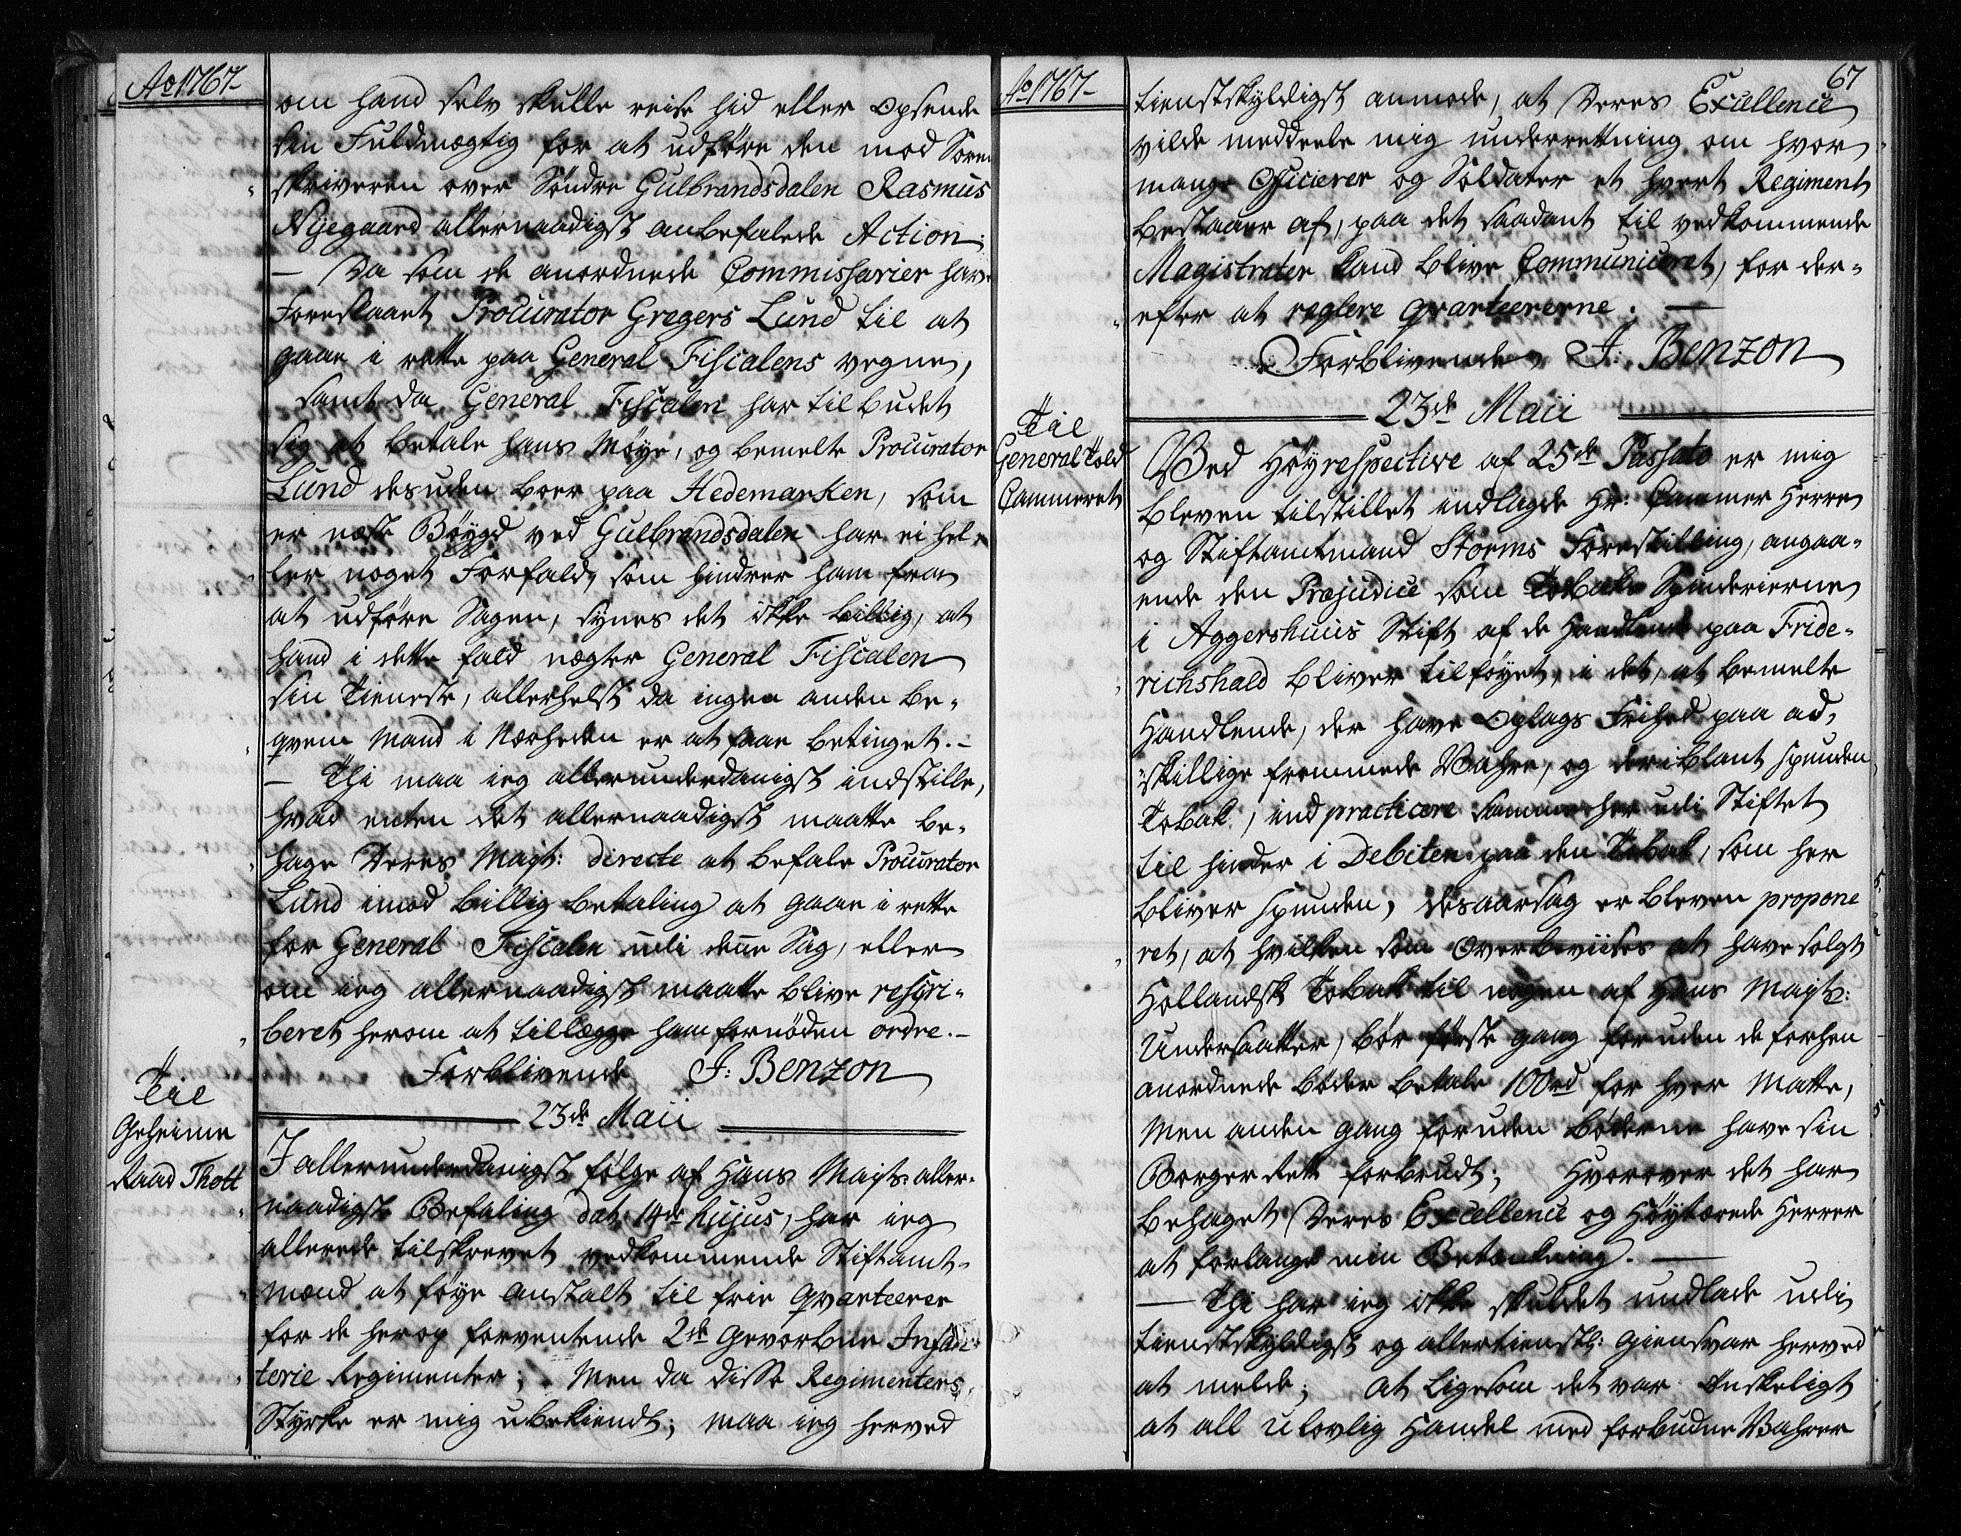 Ao 1767
om hand selv skulle reise hid eller opsende
sin Fuldmægtig for at udføre den mod Soren
skriveren over Søndre Gulbrandsdalen Rasmus
Nyegaard allernaadigst anbefalede Action;
— Da som de anordnede Commissarier have
foreslaaet Procurator Gregers Lund til at
gaae i rette paa General Fiscalens vegne,
samt da General Fiscalen har tilbudet
sig at betale hans Møye, og bemelte Procurator
Lund desuden boer paa Hedemarken, som
er næste Bøygd ved Gulbrandsdalen har ei hel-
ler noget Forfald, som hindrer ham fra
at udføre Sagen, synes det ikke billig, at
hand i dette fald nægter General Fiscalen
sin Tieneste, allerhelst da ingen anden be-
qvem Mand i Nærheden er at faae betinget.-
— Thi maa ieg allerunderdanigst indstille,
hvad enten det allernaadigst maatte be-
hage Deres Mayt: directe at befale Procurator
Lund imod billig betaling at gaae i rette
for General Fiscalen udi denne Sag, eller
om ieg allernaadigst maatte blive rescri-
beret herom at tillægge ham fornøden ordre.-
Forblivende J: Benzon
23de Maii
Til
Geheime
Raad Thott
I allerunderdanigst følge af Hans Mayts: aller-
naadigste Befaling dat: 14de hujus, har ieg
allerede tilskrevet vedkommende Stiftamt-
mænd at føye anstalt til frie qvarteerer
for de herop forventende 2de Gevorbne Infan-
terie Regimenter; Men da disse Regimenters
Styrke er mig ubekiendt; maa ieg herved
Ao 1767-
67
tienstskyldigst anmode, at Deres Excellence
vilde meddeele mig underrettning om hvor
mange Officierer og Soldater et hvert Regiment
bestaaer af, paa det saadant til vedkommende
Magistrater kand blive Communiceret, for der-
efter at reglere qvarteererne. —
Forblivende J: Benzon
23de Maii
Til
General Told
Cammeret
Ved Høyrespective af 25de Passato er mig
bleven tilstillet indlagde Hr: Cammer Herre
og Stiftamtmand Storms Forestilling, angaa-
ende den Præjudice som Tobaks Spinderierne
i Aggershuus Stift af de Handlende paa Fride-
richshald bliver tilføyet, i det, at bemelte
Handlende, der have Oplags Frihed paa ad-
skillige fremmede Vahre, og deriblant spunden
Tobak, ind practicere samme her udi Stiftet
til hinder i Debiten paa den Tobak, som her
bliver spunden, desaarsag er bleven propone
ret, at hvilken som overbeviises at have solgt
Hollandsk Tobak til nogen af Hans Mayts:
Undersaatter, bør første gang foruden de forhen
anordnede bøder betale 100rd for hver Matte,
Men anden gang foruden bøderne have sin
Borger Rett forbrudt; Hvorover det har
behaget Deres Excellence og Høystærede Herrer
at forlange min Betænkning. —
— Thi har ieg ikke skuldet undlade udi
tienstskyldigst og allertienstl: giensvar herved
at melde; At ligesom det var ønskeligt
at all ulovlig Handel med forbudne Vahrer